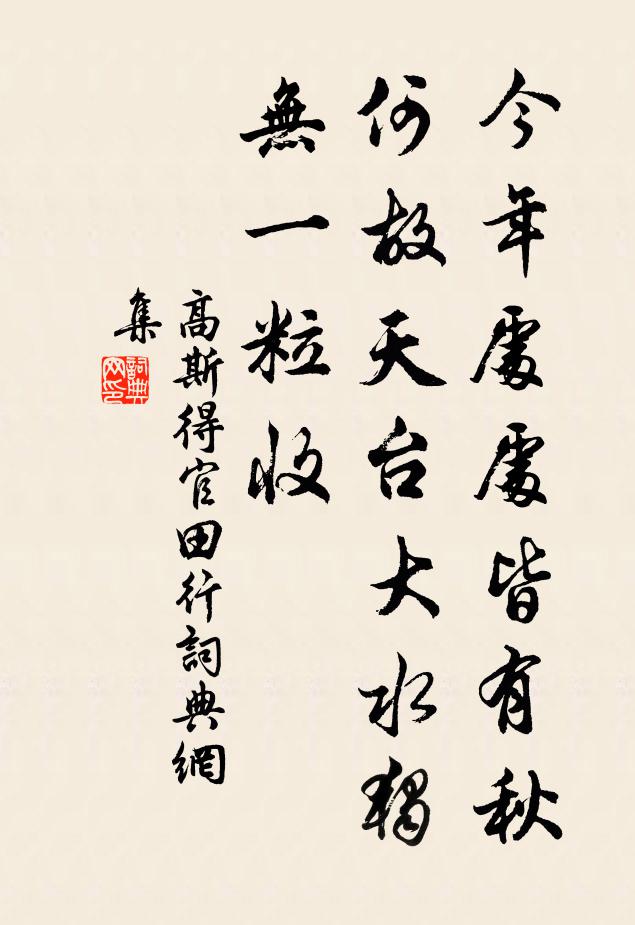 今年處處皆有秋
何故天台大水獨
無一粒收
高斯得官田行詞典網
集
詞典
网印